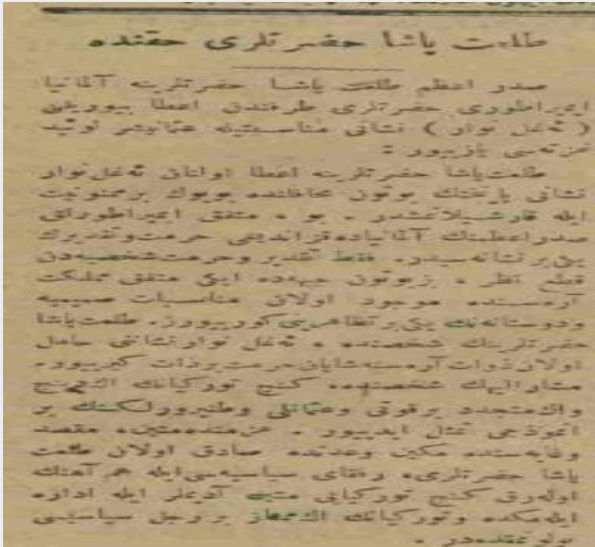 طلعت پاشا حضرتلری حقنده
صدر اعظم طلعت پاشا حضرتلرینه آلمانیا
ایمپراطوری حضرتلری طرفندن اعطا بیوریلان
( نشانی مناسبتیله عثمانیشر لوئید
غزته‌سی یازییور :
طلعت پاشا حضرتلرینه اعطا اولنان
نشانی پایتختك بوتون محافلنده بویوك بر ممنونیت
ایله قارشیلانمشدر . بو ، متفق ایمپراطورلغك
صدر اعظمنك آلمانیاده قزاندیغی حرمت و تقدیرك
یکی بر نشانه‌سیدر . فقط تقدیر و حرمت شخصیه‌دن
قطع نظر ، بز بوتون ایکی متفق مملکت
آره‌سنده موجود اولان مناسبات صمیمیه
و دوستانه‌نك یکی بر تظاهرینی کورییورز . طلعت پاشا
حضرتلرینك شخصنده ، نشاننی حامل
اولان ذوات آره‌سنه شایان حرمت بر ذات کیرییور .
مشارالیهك شخصنده کنج تورکیانك اك
واك متجدد بر قوتی و عثمانلی وطنپرورلکنك بر
انموذجی تمثل ایدییور . عزمنده متین ، مقصد
وغایه‌سنده مکین وعدنده صادق اولان طلعت
پاشا حضرتلری ، رفقای سیاسیه‌سی ایله هم آهنك
اوله‌رق کنج تورکیایی متین آدیملر ایله اداره
ایله‌مکده و تورکیانك اك ممتاز بر رجل سیاسیسی
بولونمقده‌در .